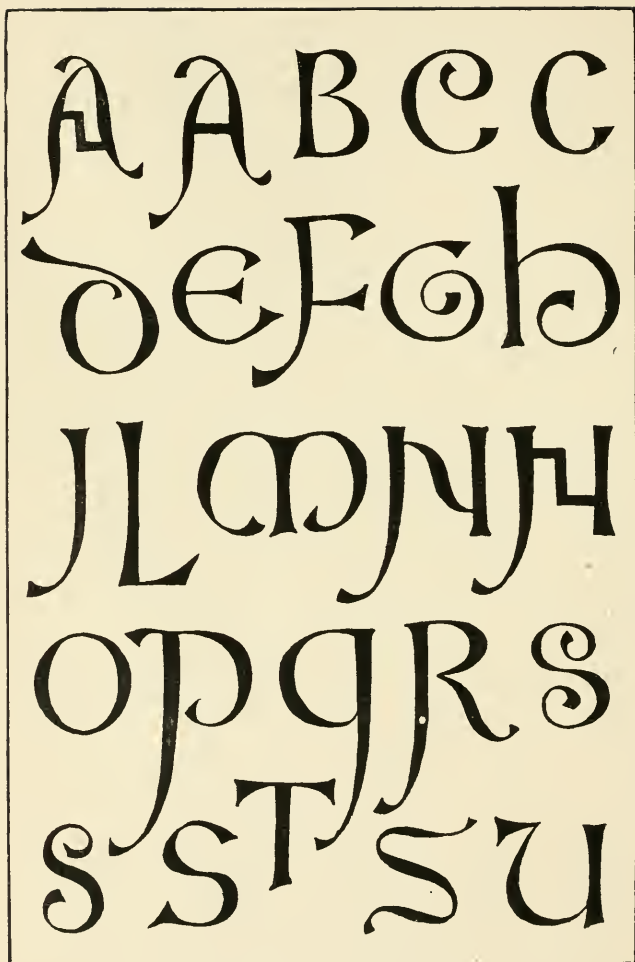 A A B C C
D E F G H
J L M N N
O P Q R S
S S T S U